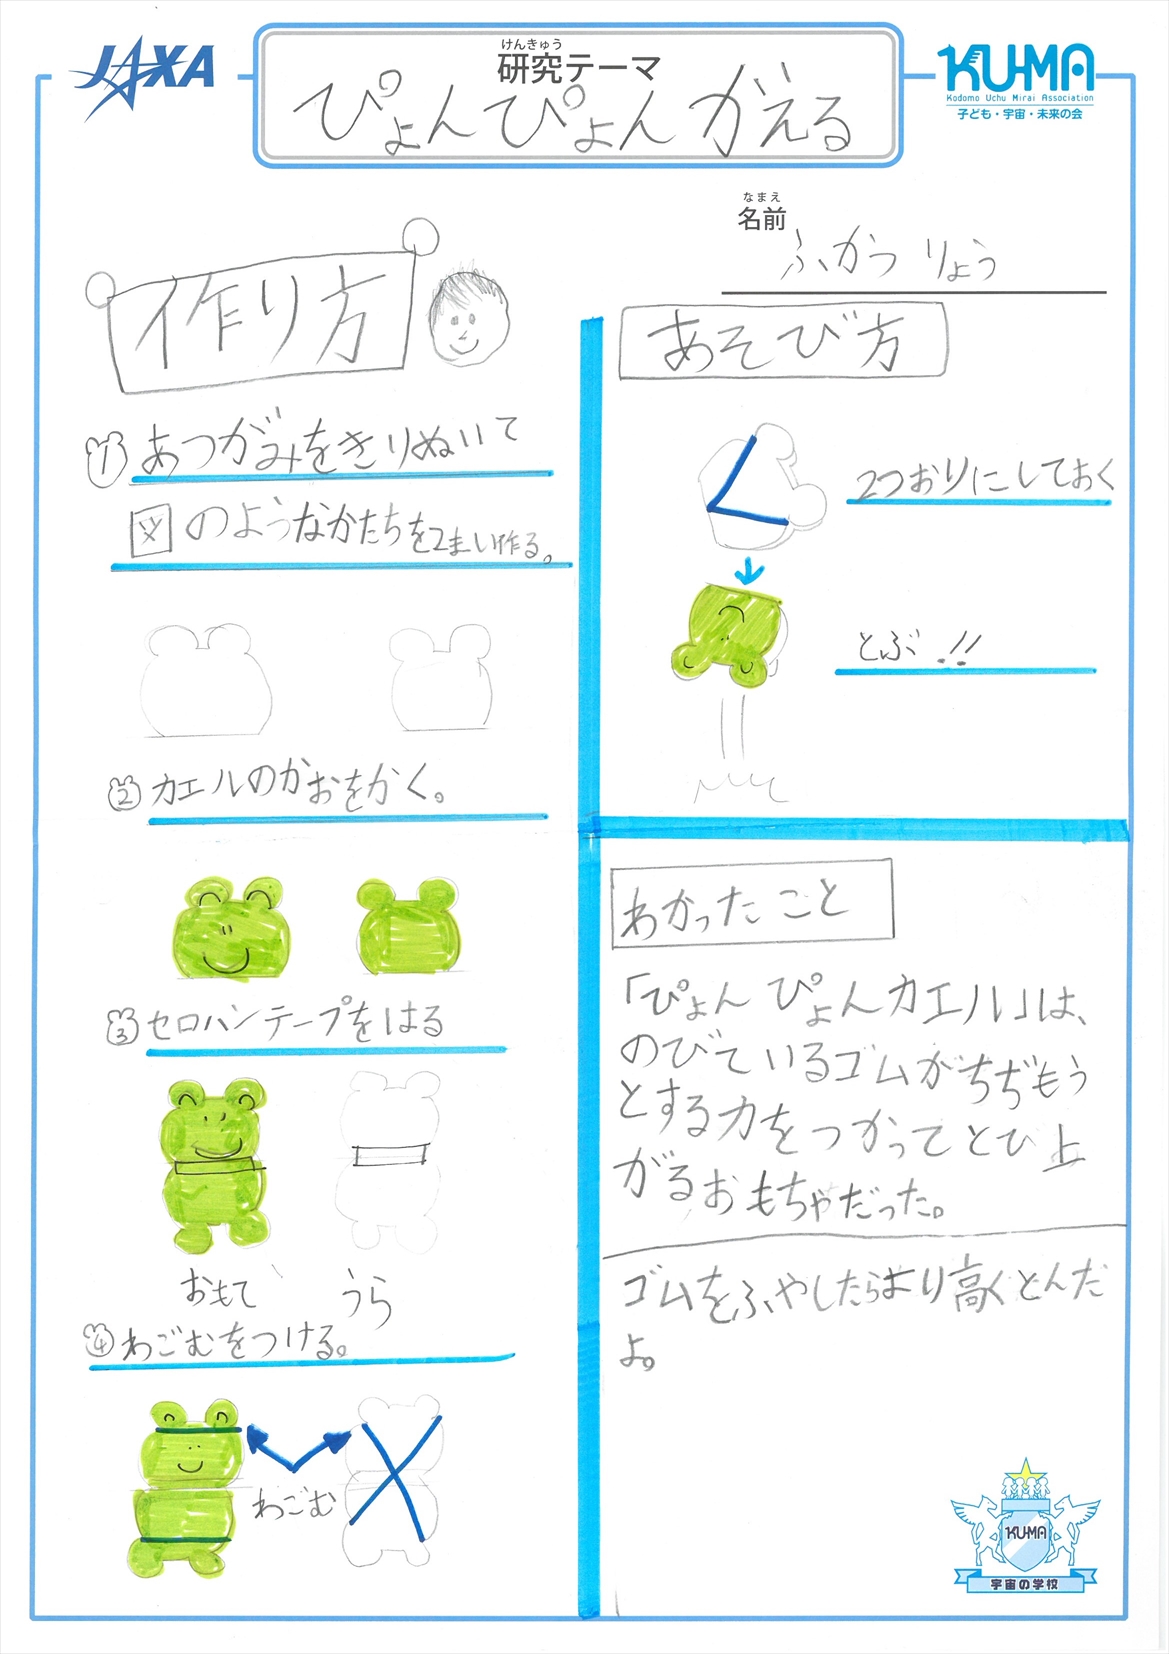 JAXA
けんきゅう
研究テーマ
ぴょんぴょんかえる
KUMA
Kodomo Uchu Mirai Association
子ども・宇宙・未来の会
なまえ
名前
ふかつ りょう
作り方
① あつがみをきりぬいて
図のようなかたちを2まい作る。
② カエルのかおをかく。
③ セロハンテープをはる
おもて うら
④ わごむをつける。
わごむ
あそび方
2つおりにしておく
とぶ!!
わかったこと
「ぴょんぴょんカエル」は、
のびているゴムがちぢもう
とする力をつかってとび上
がるおもちゃだった。
ゴムをふやしたらより高くとんだ
よ。
KUMA
宇宙の学校